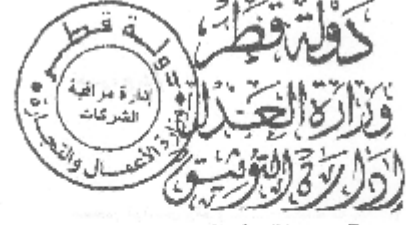 دولة قطر
وزارة العدل
إدارة التوثيق
دولة قطر
إدارة مراقبة
الشركات
وزارة الأعمال والتجارة